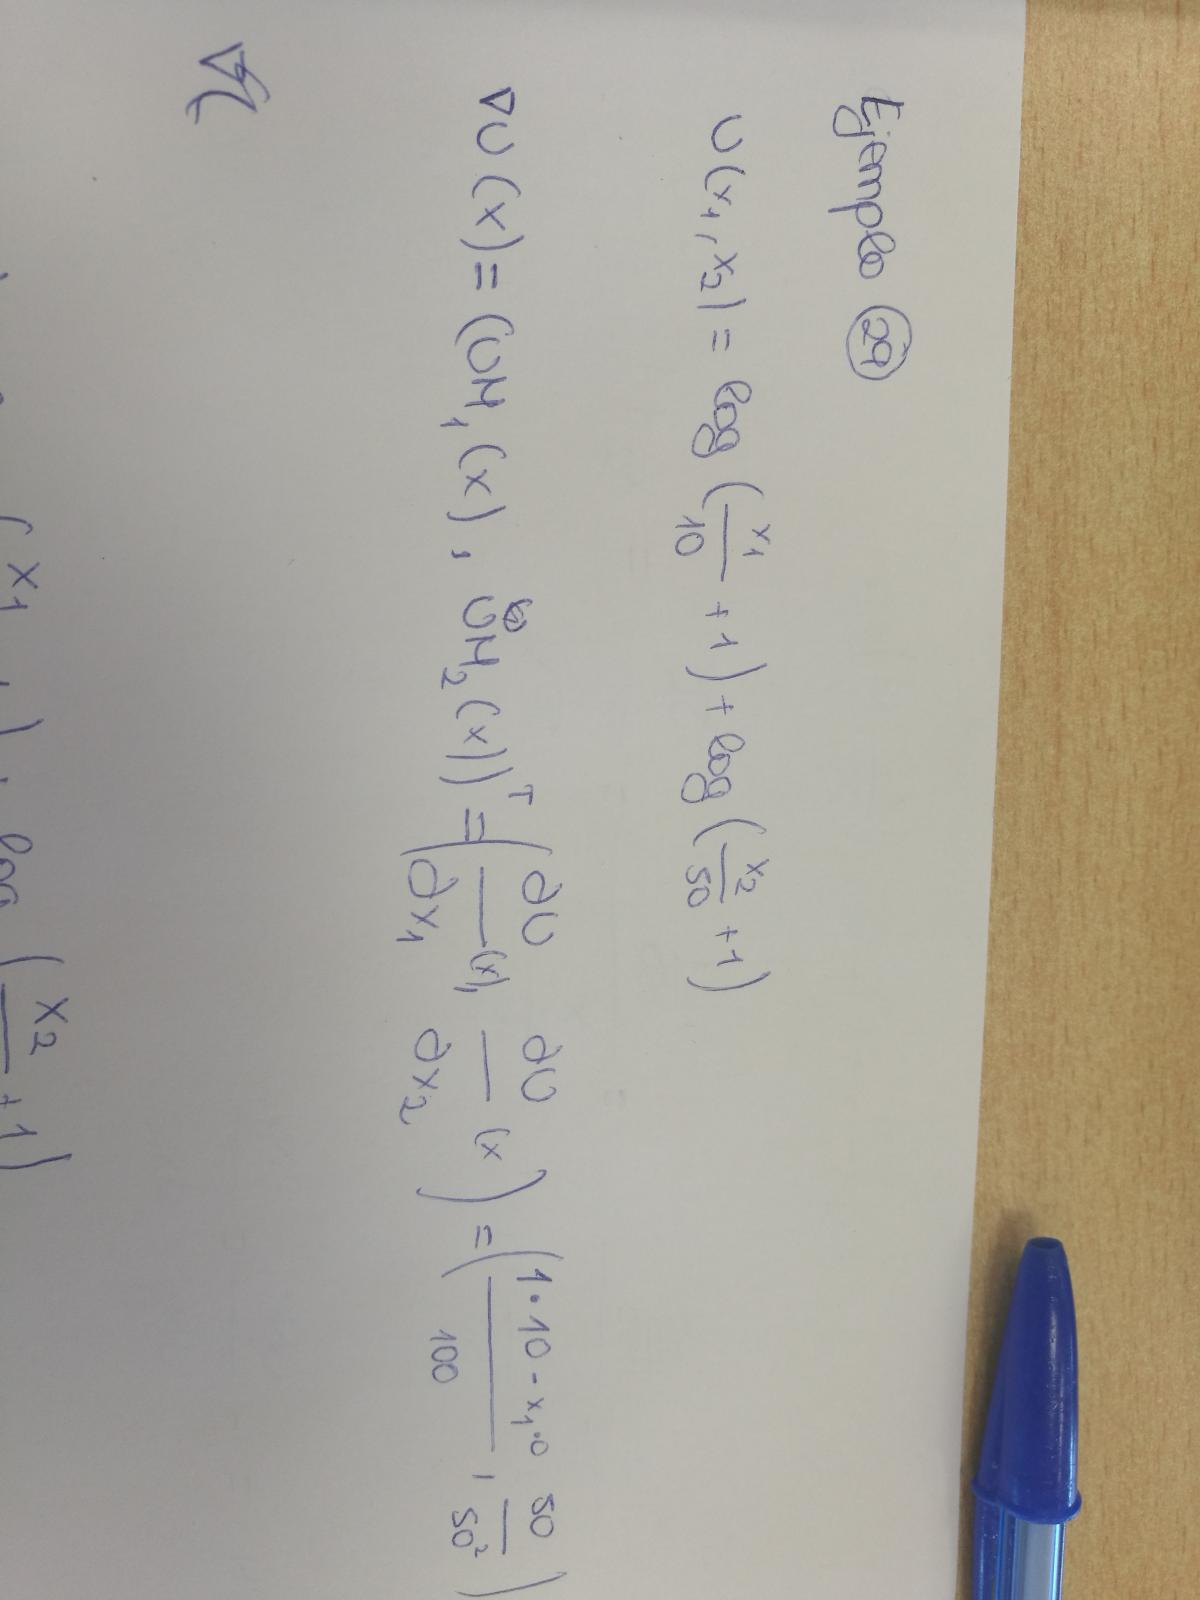 Ejemplo 29
U(x₁, x₂) = log (x₁/10 + 1) + log (x₂/50 + 1)
∇U(x) = (UM₁(x), UM₂(x))ᵀ = (∂U/∂x₁ (x), ∂U/∂x₂ (x) = (1·10 - x₁·0/100, 50/50²)
(x₁, ) log (x₂/ + 1)